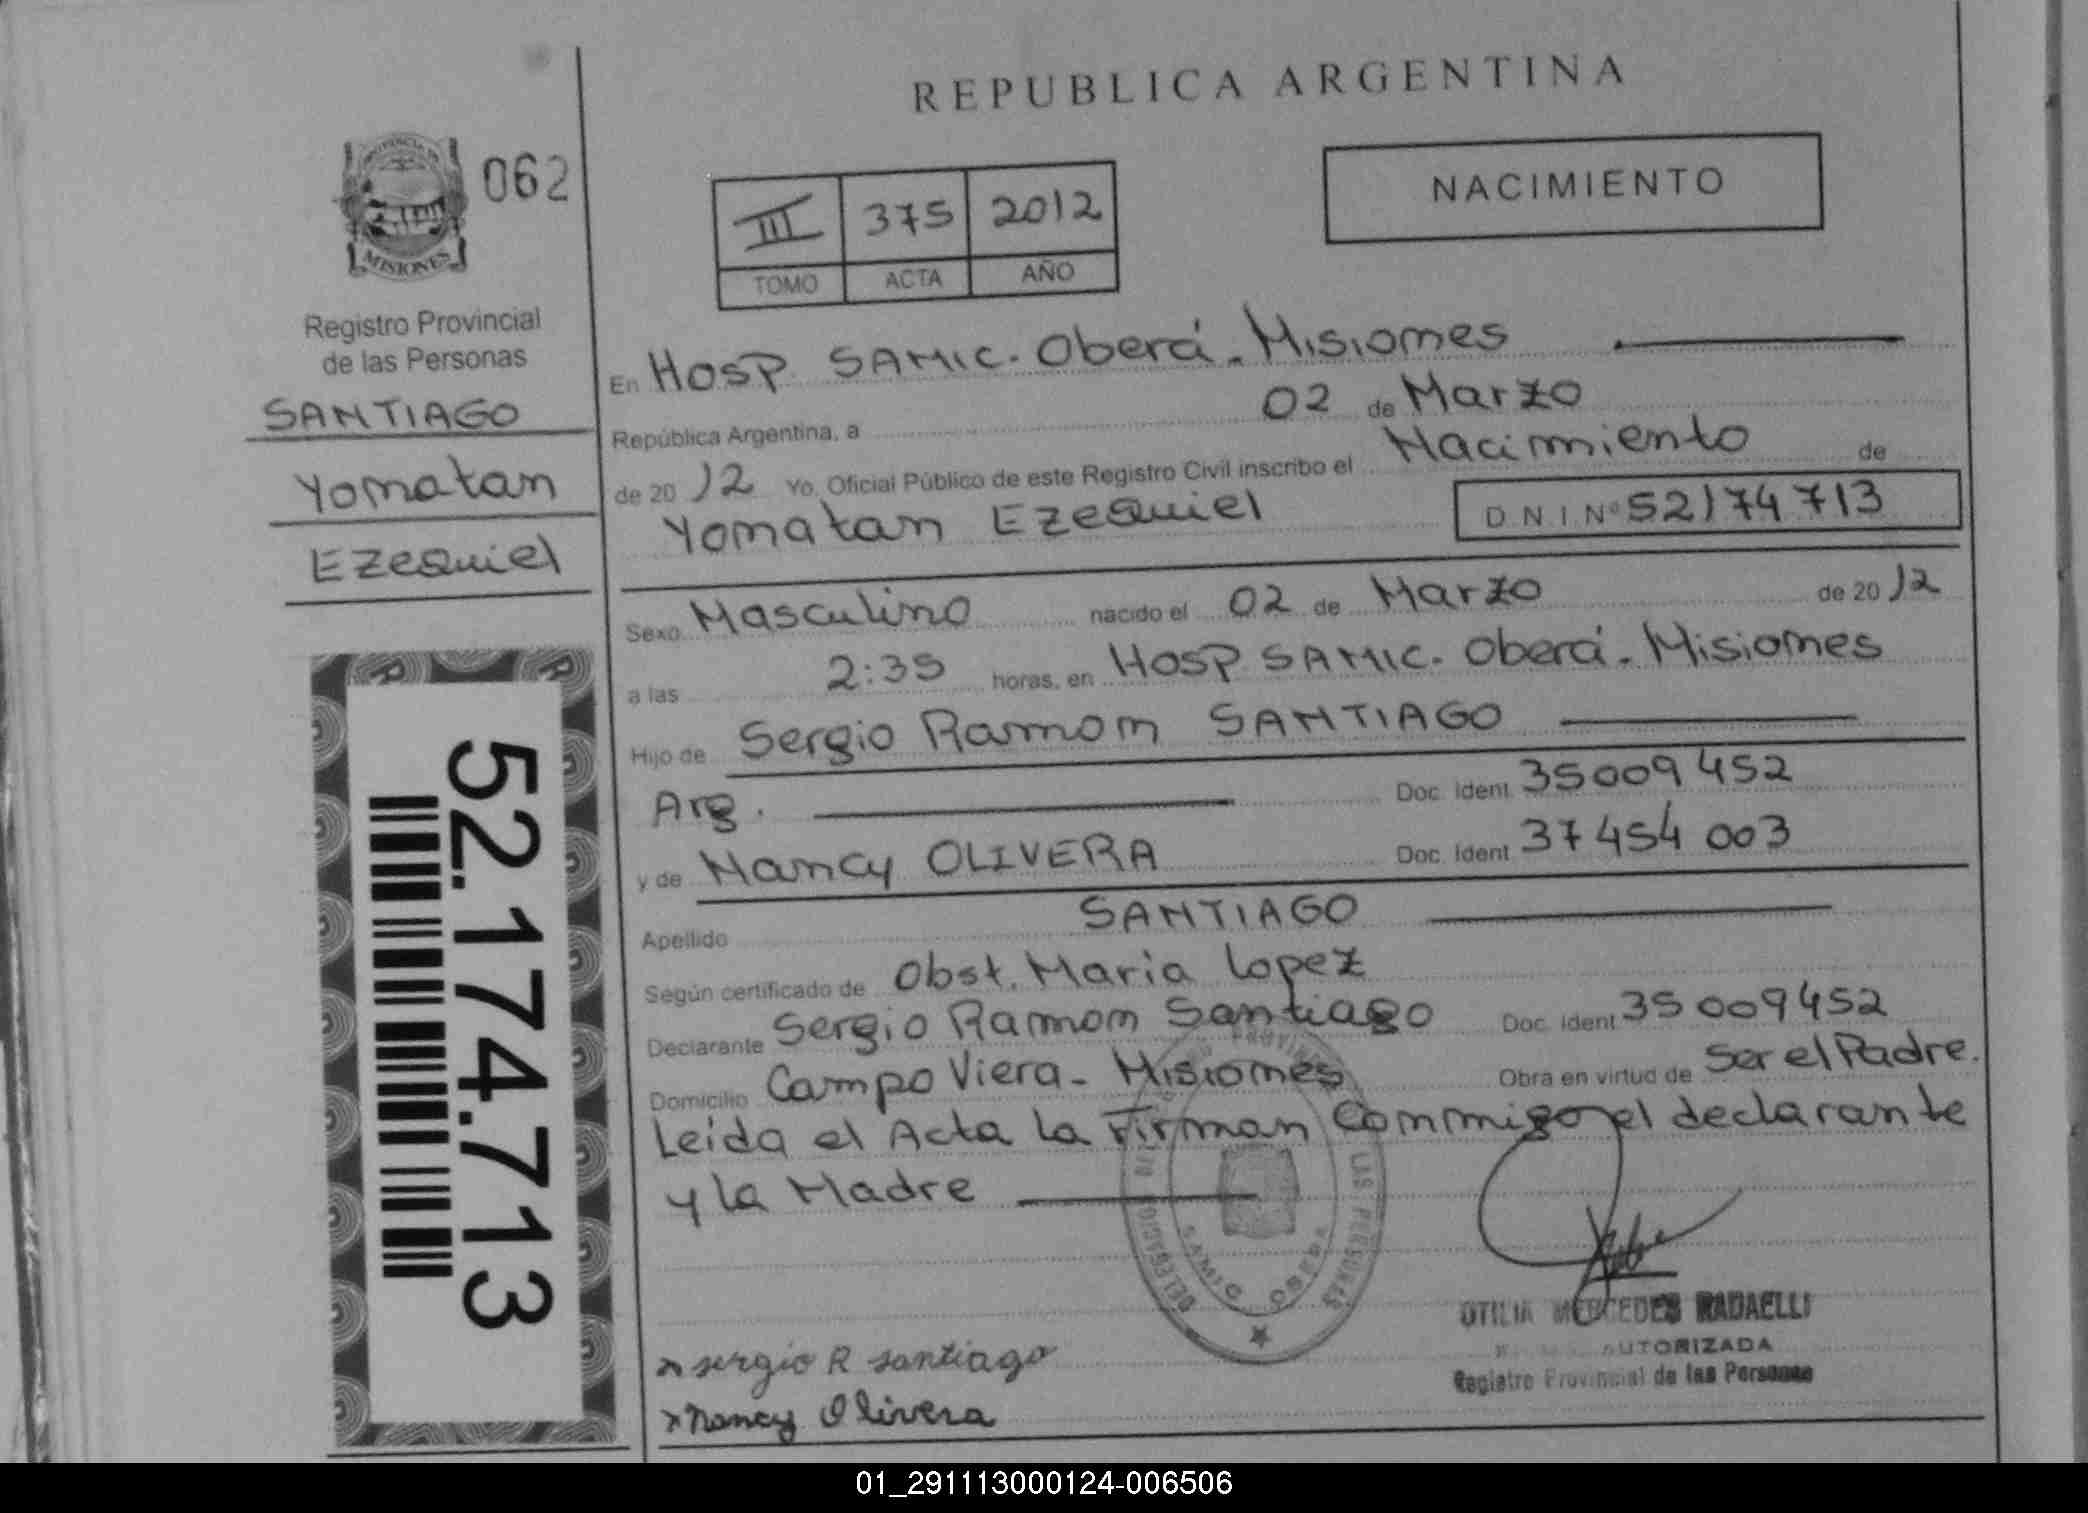 REPUBLICA ARGENTINA
PROVINCIA DE
MISIONES
062
Registro Provincial
de las Personas
SANTIAGO
Yonatan
Ezequiel
52.174.713
III 375 2012
TOMO ACTA AÑO
NACIMIENTO
En Hosp. SAMIC. Oberá. Misiones
República Argentina, a 02 de Marzo
de 20 12 Yo, Oficial Público de este Registro Civil inscribo el Nacimiento de
Yonatan Ezequiel D.N.I.Nº 52174713
Sexo Masculino nacido el 02 de Marzo de 20 12
a las 2:35 horas, en Hosp. SAMIC. Oberá. Misiones
Hijo de Sergio Ramon SANTIAGO
Arg. Doc. Ident. 35009452
y de Nancy OLIVERA Doc. Ident 37454003
Apellido SANTIAGO
Según certificado de Obst. Maria Lopez
Declarante Sergio Ramon Santiago Doc. Ident 35009452
Domicilio Campo Viera - Misiones Obra en virtud de Ser el Padre.
Leida el Acta la Firman Conmigo el declarante
y la Madre
LAS PERSONAS
SAMIC OBERA
OTILIA MERCEDES RADAELLI
AUTORIZADA
Registro Provincial de las Personas
x sergio R santiago
x nancy Olivera
01_291113000124-006506